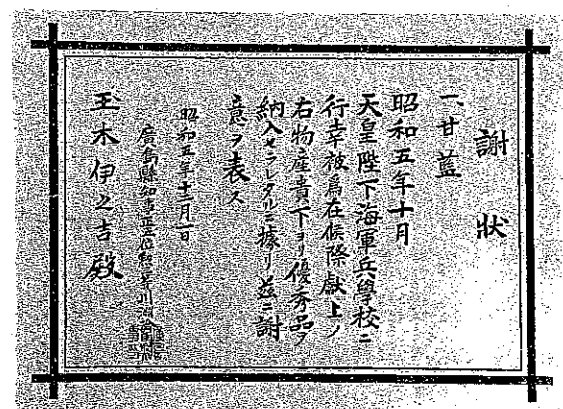 謝狀
一、甘藍
昭和五年十月
天皇陛下海軍兵學校ニ
行幸被爲在候際獻上ノ
右物産貴下ヨリ優秀品ヲ
納入セラレタルニ據リ茲ニ謝
意ヲ表ス
昭和五年十二月一日
廣島縣知事正五位勲
玉木伊之吉殿